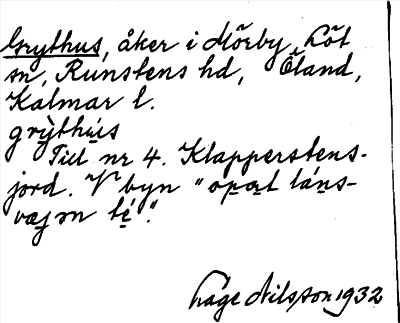 Grythus, åker i Mörby, Löt
sn, Runstens hd, Öland,
Kalmar l.
grỳthú̱s
Till nr 4. Klapperstens-
jord. V byn "opa̱t láṉs-
væjən té̱".
Låge Nilsson 1932